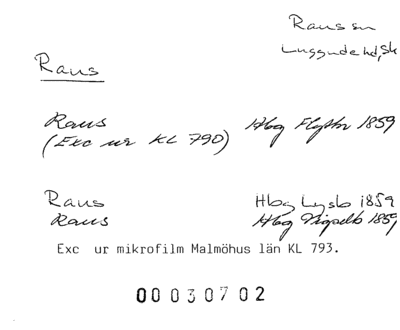 Raus sn
Luggude hd, Sk
Raus
Raus Hbg Flyttn 1859
(Exc ur KL 790)
Raus Hbg Lysb 1859
Raus Hbg Vigselb 1859
Exc ur mikrofilm Malmöhus län KL 793.
00030702